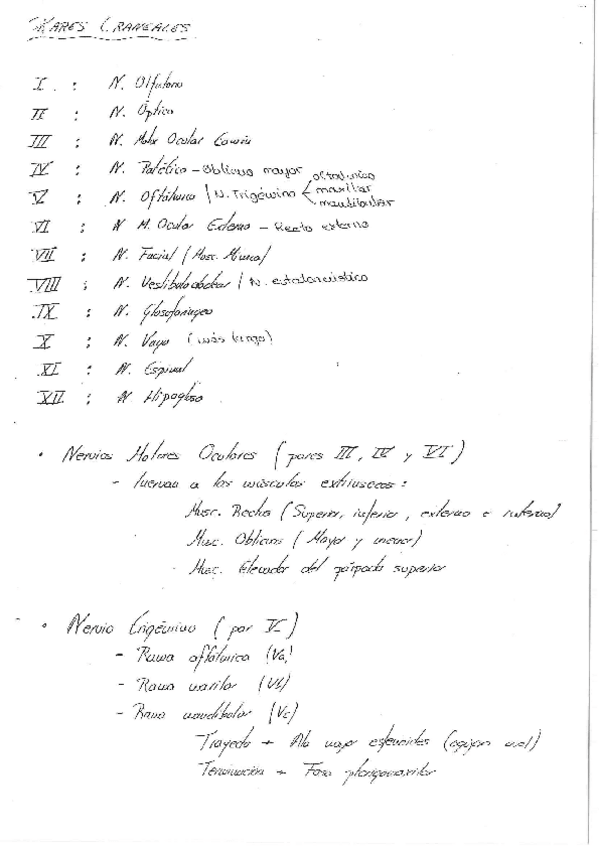 PARES CRANEALES
I : N. Olfatorio
II : N. Óptico
III : N. Motor Ocular Común
IV : N. Patético - oblicuo mayor
V : N. Oftálmico / N. Trigémino < oftálmico maxilar mandibular
VI : N M. Ocular Externo - Recto externo
VII : N. Facial (Musc. Mímica)
VIII : N. Vestibulococlear / N. estatoacústico
IX : N. Glosofaríngeo
X : N. Vago (más largo)
XI : N. Espinal
XII : N Hipogloso
• Nervios Motores Oculares (pares III, IV y VI)
- Inervan a los músculos extrínsecos:
Musc. Rectos (Superior, inferior, externo e interno)
Musc. Oblicuos (Mayor y menor)
Musc. Elevador del párpado superior
• Nervio Trigémino (par V)
- Rama oftálmica (Va)
- Rama maxilar (Vb)
- Rama mandibular (Vc)
Trayecto → Ala mayor esfenoides (agujero oval)
Terminación → Fosa pterigomaxilar